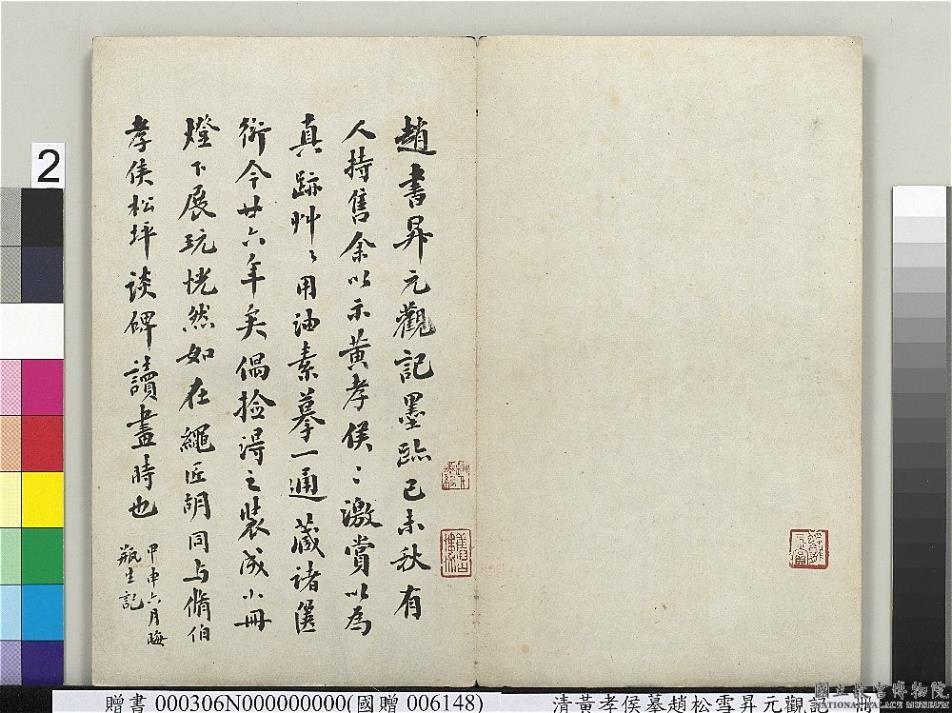 趙書昇元觀記墨跡己未秋有
人持售余以示黃孝侯〻激賞以爲
真跡艸〻用油素摹一通藏諸篋
衍今廿六年矣偶撿得之裝成小冊
燈下展玩恍然如在繩匠胡同与脩伯
孝侯松坪談碑讀畫時也
甲申六月晦
瓶生記
2
贈書 000306N000000000(國贈 006148)
清黃孝侯摹趙松雪昇元觀記
國立故宮博物院
NATIONAL PALACE MUSEUM